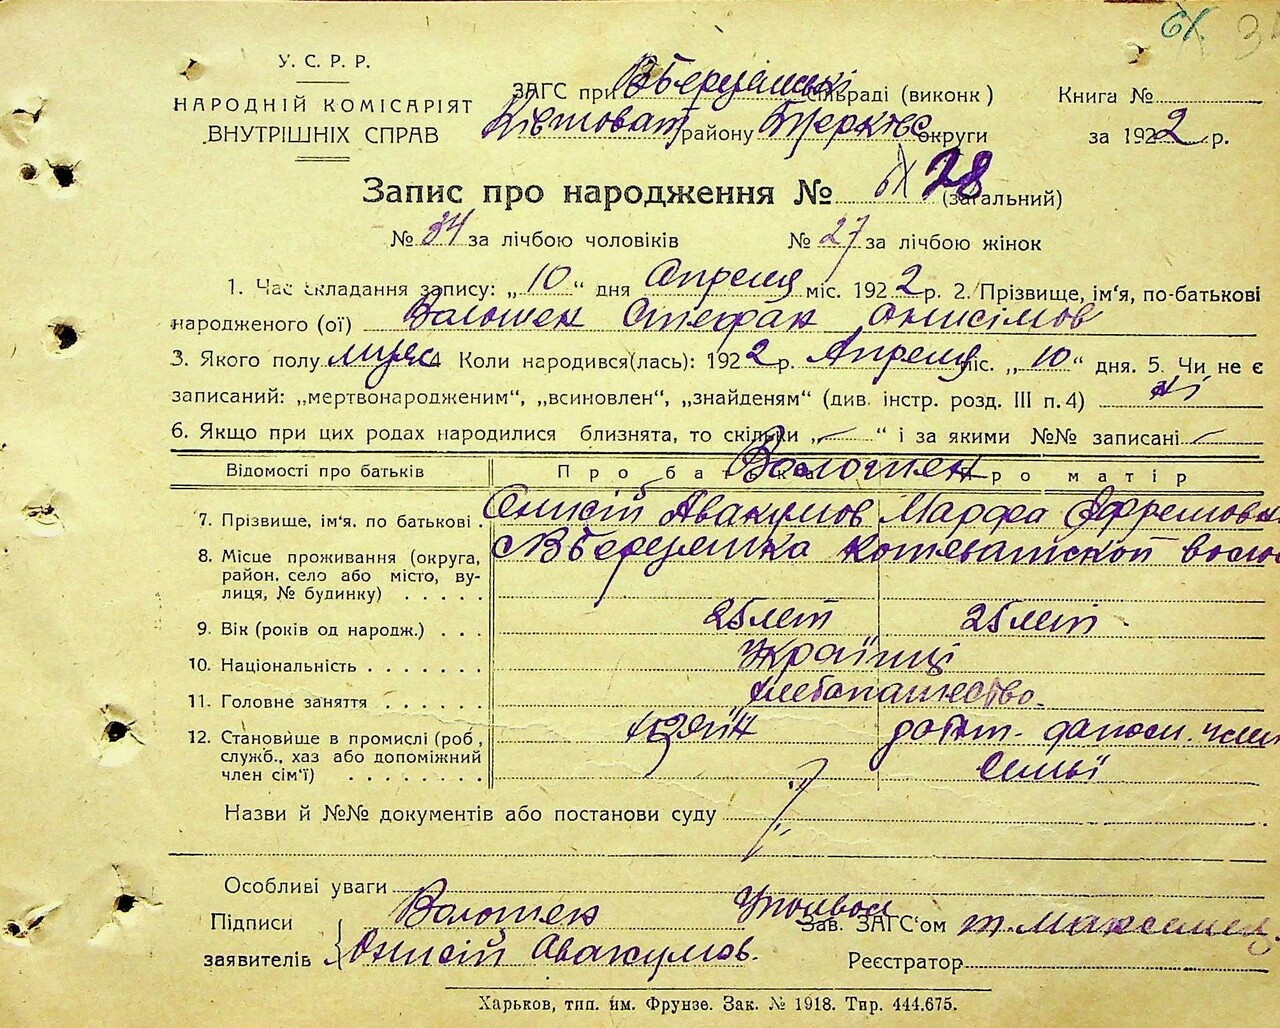 6X 3
У. С. Р. Р.
НАРОДНІЙ КОМІСАРІЯТ
ВНУТРІШНІХ СПРАВ
ЗАГС при сільраді (виконк)
району округи
Книга №
за 1922 р.
Запис про народження № 28 (загальний)
№ 34 за лічбою чоловіків № 27 за лічбою жінок
1. Час складання запису: „10" дня Апреля міс. 1922 р. 2. Прізвище, ім'я, по-батькові
народженого (ої) Волошен Стефан Онисімов
3. Якого полу муж 4 Коли народився(лась): 1922 р. Апреля міс. „10" дня. 5. Чи не є
записаний: „мертвонародженим", „всиновлен", „знайденям" (див. інстр. розд. III п. 4) ні
6. Якщо при цих родах народилися близнята, то скільки „—" і за якими №№ записані —
Відомості про батьків Про батька Про матір
Волошен
7. Прізвище, ім'я, по батькові Онисій Авакумов Марфа Ефремовн
8. Місце проживання (округа,
район, село або місто, ву-
лиця, № будинку)
9. Вік (років од народж.) 25 лет 25 лет
10. Національність Українці
11. Головне заняття хлебопашество.
12. Становище в промислі (роб.,
служб., хаз або допоміжний
член сім'ї) хозяїн член
Семьї
Назви й №№ документів або постанови суду
Особливі уваги
Підписи Волошен Зав. ЗАГС'ом
заявителів Онисій Авакумов. Реєстратор
Харьков, тип. им. Фрунзе. Зак. № 1918. Тир. 444.675.